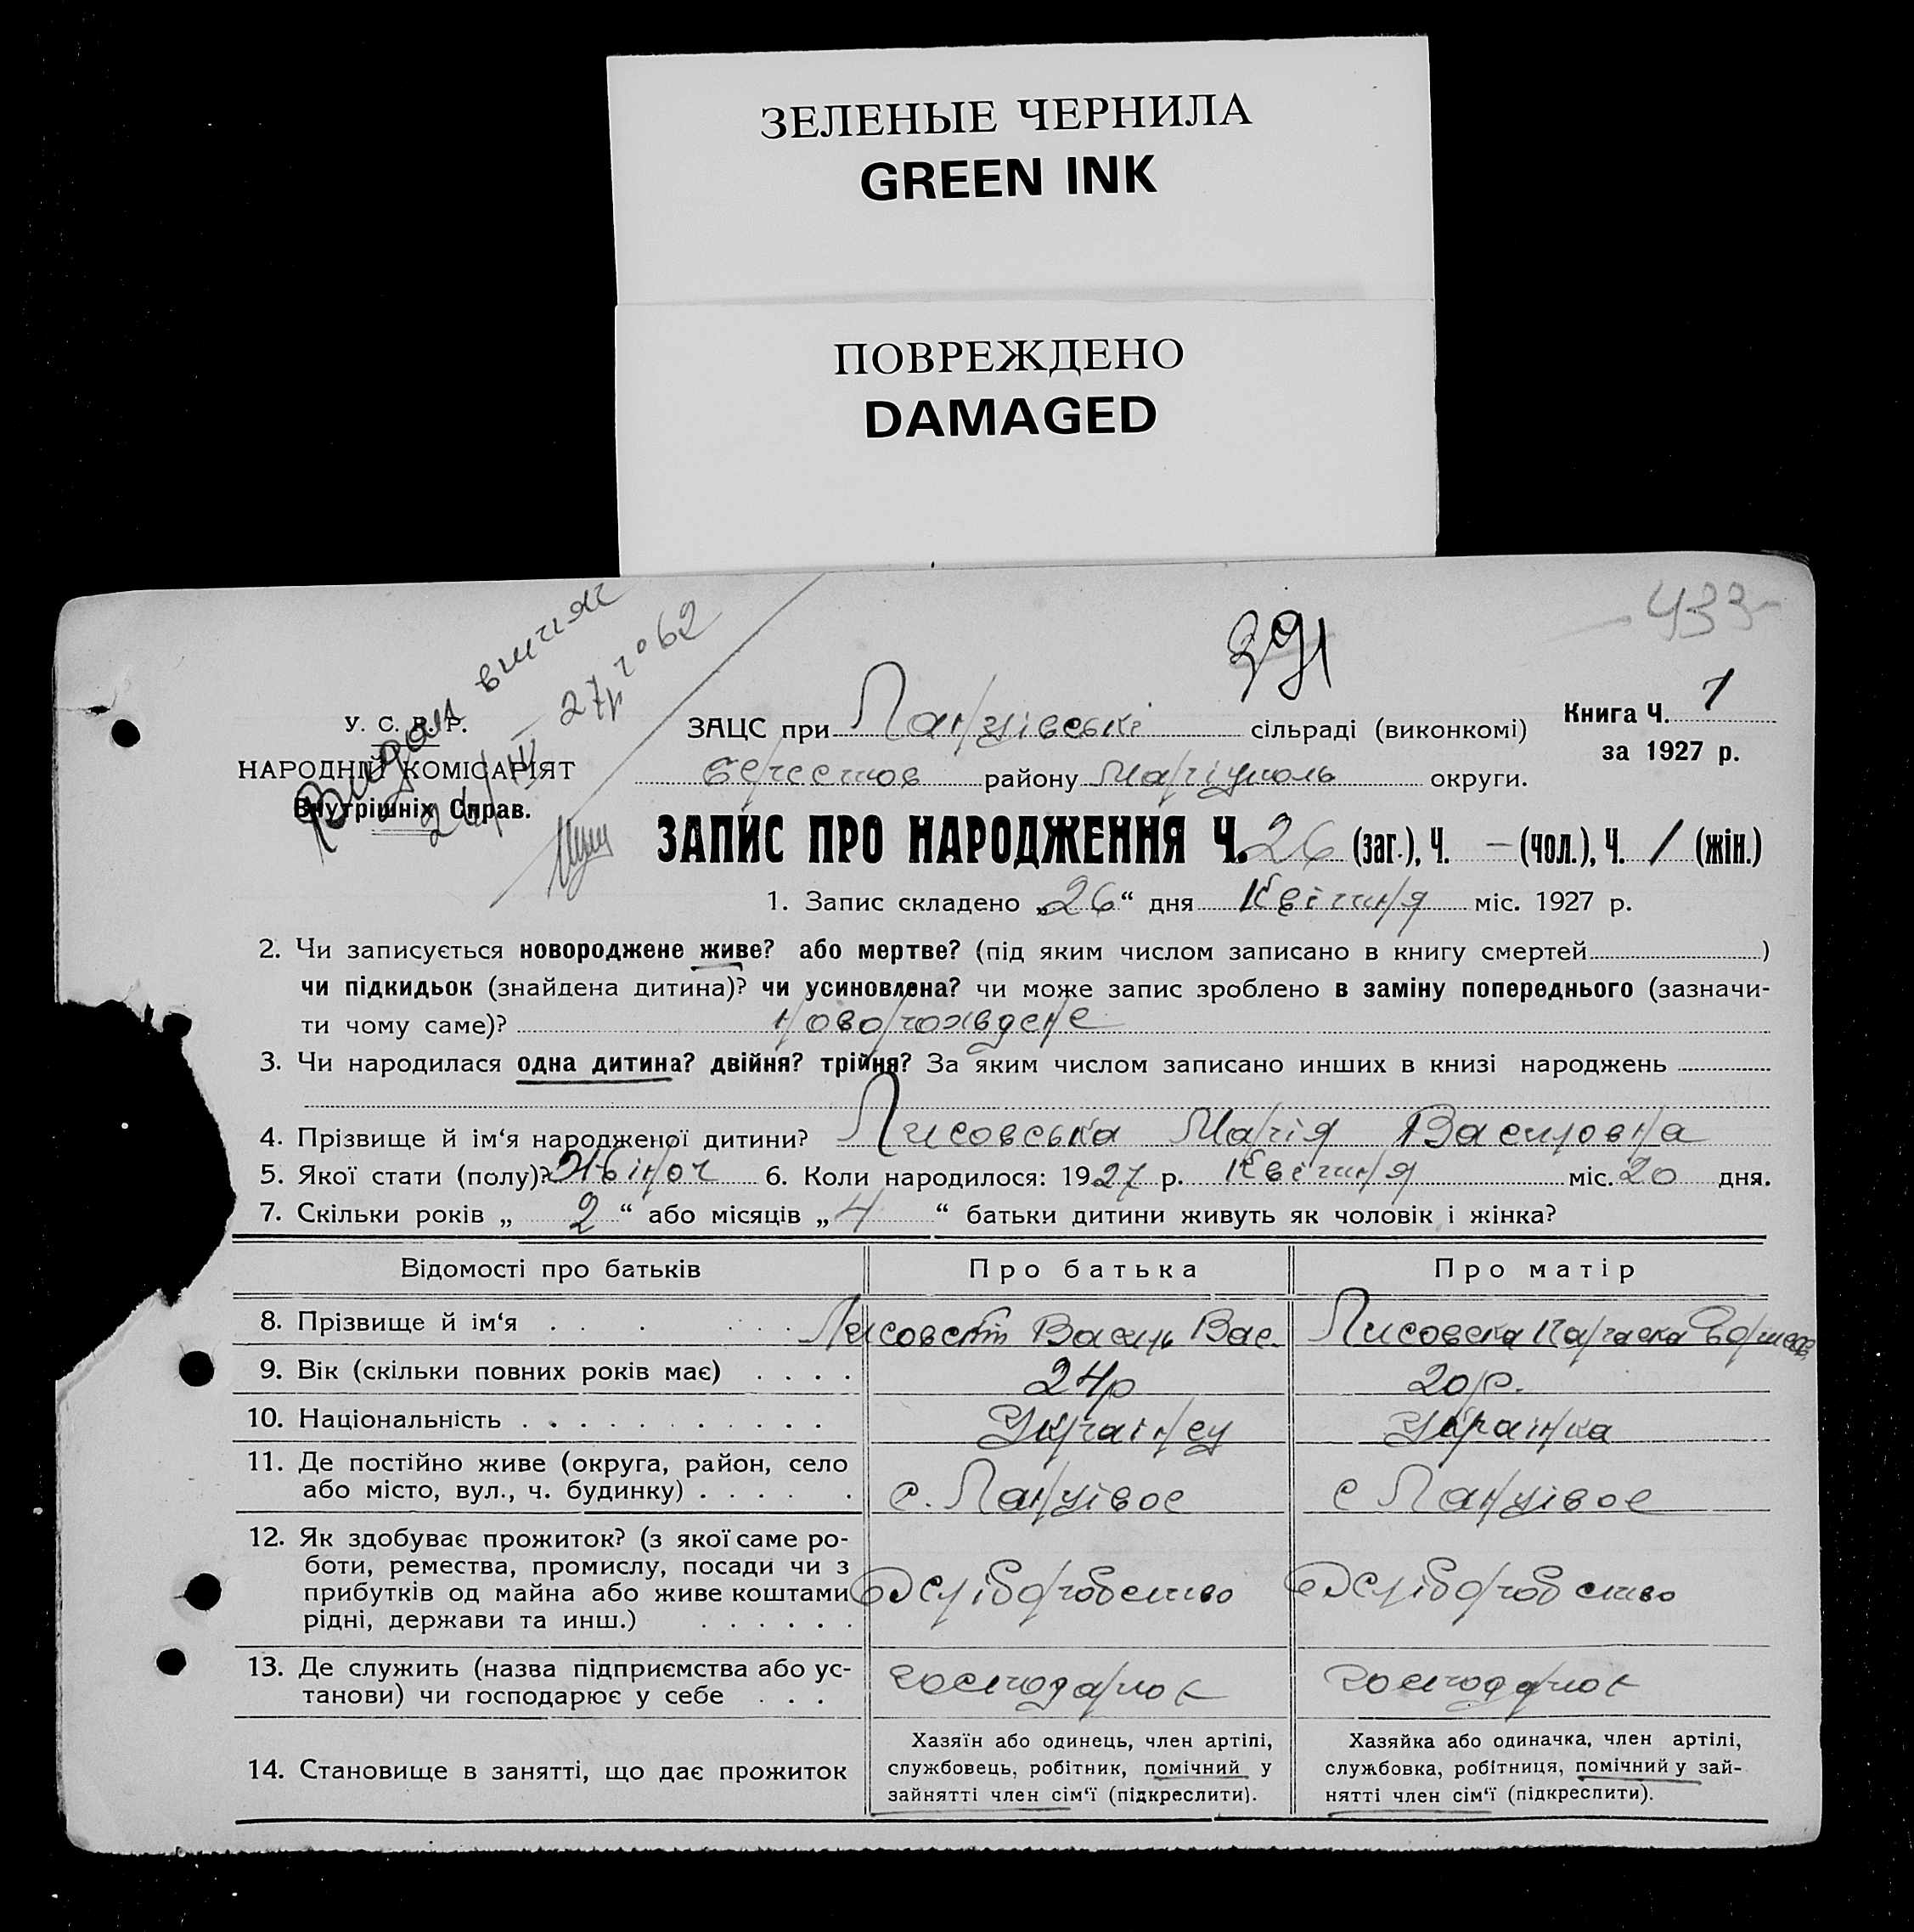 ЗЕЛЕНЫЕ ЧЕРНИЛА
GREEN INK
ПОВРЕЖДЕНО
DAMAGED
433
391
Видали витяг
27р № 62
У. С. Р. Р.
НАРОДНІЙ КОМІСАРІЯТ
Внутрішніх Справ.
Книга Ч. 1
за 1927 р.
ЗАЦС при Ланцівські сільраді (виконкомі)
Берестов району Маріуполь округи.
ЗАПИС ПРО НАРОДЖЕННЯ Ч. 26 (заг.), Ч. – (чол.), Ч. 1 (жін.)
1. Запис складено „26“ дня Квітня міс. 1927 р.
2. Чи записується новороджене живе? або мертве? (під яким числом записано в книгу смертей)
чи підкидьок (знайдена дитина)? чи усиновлена? чи може запис зроблено в заміну попереднього (зазначи-
ти чому саме)? новорожвдене
3. Чи народилася одна дитина? двійня? трійня? За яким числом записано инших в книзі народжень
4. Прізвище й ім‘я народженої дитини? Лисовська Марія Василовна
5. Якої стати (полу)? Жвіноч 6. Коли народилося: 1927 р. Квітня міс. 20 дня.
7. Скільки років „ 2 “ або місяців „ 4 “ батьки дитини живуть як чоловік і жінка?
Відомості про батьків Про батька Про матір
8. Прізвище й ім‘я Лисовск Василь Вас. Лисовска Параска
9. Вік (скільки повних років має) 24р 20р.
10. Національність Українец Українка
11. Де постійно живе (округа, район, село
або місто, вул., ч. будинку) с. Ланцівое с Ланцівое
12. Як здобуває прожиток? (з якої саме ро-
боти, ремества, промислу, посади чи з
прибутків од майна або живе коштами хліборобство хліборобство
рідні, держави та инш.)
13. Де служить (назва підприємства або ус-
танови) чи господарює у себе
14. Становище в занятті, що дає прожиток
Хазяїн або одинець, член артілі,
службовець, робітник, помічний у
зайнятті член сім‘ї (підкреслити).
Хазяйка або одиначка, член артілі,
службовка, робітниця, помічний у зай-
нятті член сім‘ї (підкреслити).